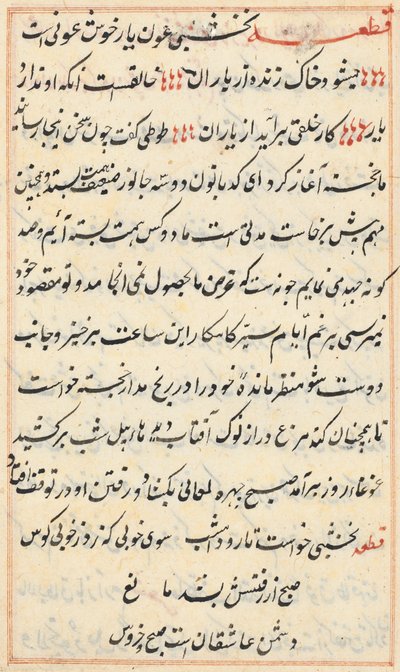 قطعه نخشبی عون یار خوش عونی است
میشود خاک زنده از یاران خالقست آنکه او ندارد
یار کار خلقی برآید از یاران طوطی گفت چون سخن اینجا رسانید
ما خجسته آغاز کرد ای کدبانو دو سه جانور ضعیف همت بستند و چنین
مهم پیش برخاست مدتی است ما دو کس همت بسته آئیم و صد
کونه جهدی نمایم چونست که غرض ما بحصول نمی انجامد و تو مقصود خود
نمیرسی برغم ایام سیر کامکار این ساعت برخیز و جانب
دوست شو منتظر مانده خود را دریغ مدار خجسته خواست
تا همچنان کند مرغ دراز نوک آفتاب بیضهاء پیل شب برکشید
غوغاء روز برآمد صبح چهره لمعانی بکشاد و رفتن او در توقف افتاد
قطعه نخشبی خواست تا رود امشب سوی خوبی که زد ز خوبی کوس
صبح از رفتنش بشد مانع
دشمن عاشقان است صبح و خروس